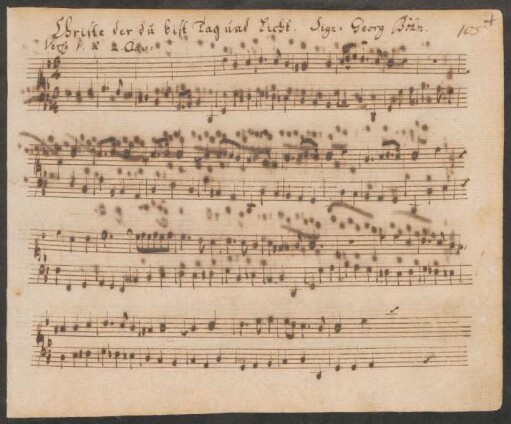 Christe der du bist Tag und Licht. Sigr. Georg Böhm. 105
Vers 1. â 2 Clav: